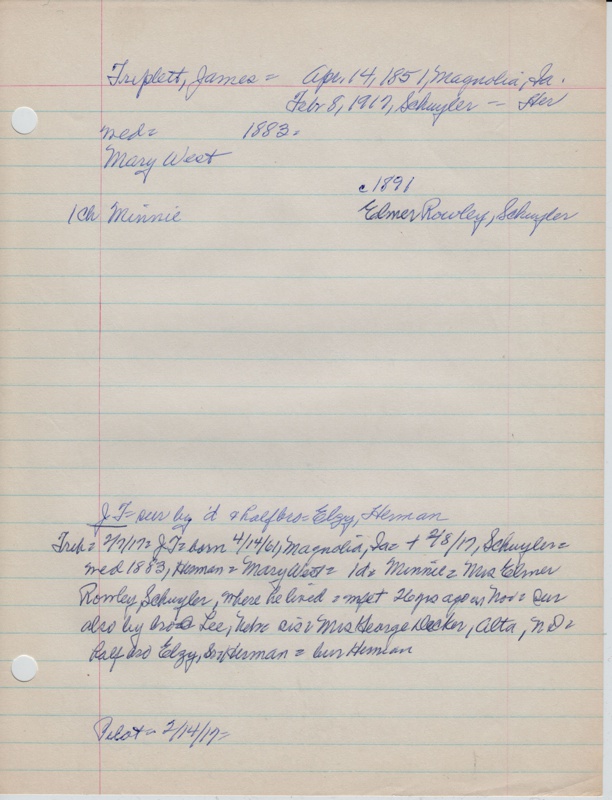 Triplett, James = Apr. 14, 1851, Magnolia, Ia.
Febr 8, 1917, Schuyler — Her
med = 1883 =
Mary West
c 1891
1 ch Minnie Elmer Rowley, Schuyler
J T = sur by 'd + halfbro = Elzy, Herman
Trib = 2/17/17 = J T = born 4/14/61, Magnolia, Ia = + 2/8/17, Schuyler =
med 1883, Herman = Mary West = 1 d = Minnie = Mrs Elmer
Rowley, Schuyler, where he lived = 20 yrs ago in Nov = sur
also by bro Lee, Nebr sis = Mrs George Decker, Alta, ND =
half bro Elzy, Herman = bur Herman
Pilot = 2/14/17 =